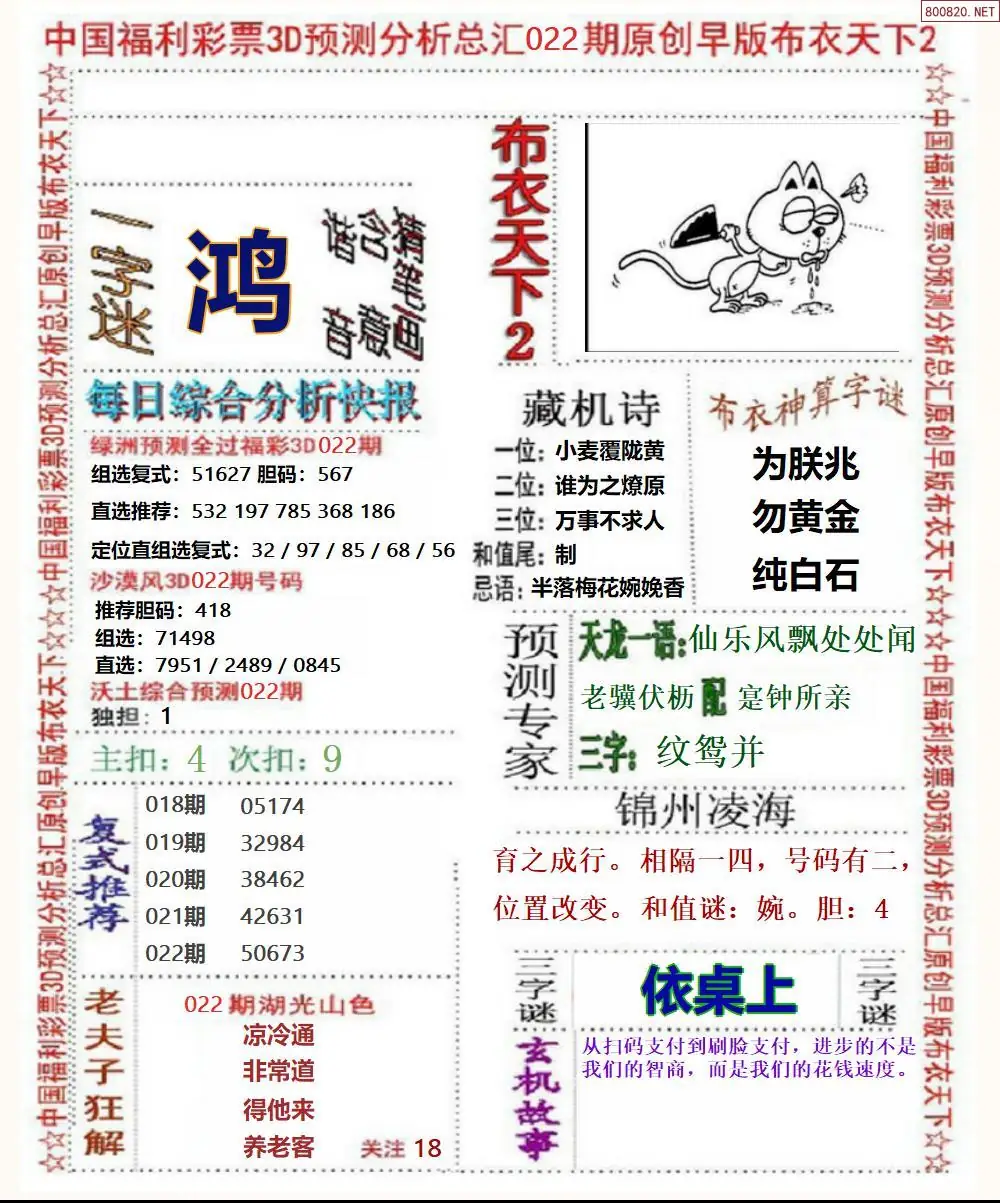 800820.NET
中国福利彩票3D预测分析总汇022期原创早版布衣天下2
☆☆中国福利彩票3D预测分析总汇原创早版布衣天下☆☆☆☆中国福利彩票3D预测分析总汇原创早版布衣天下☆☆
一字迷
鸿
猜笔画
含意
谐音
布衣天下2
每日综合分析快报
绿洲预测全过福彩3D022期
组选复式：51627 胆码：567
直选推荐：532 197 785 368 186
定位直组选复式：32 / 97 / 85 / 68 / 56
沙漠风3D022期号码
推荐胆码：418
组选：71498
直选：7951 / 2489 / 0845
沃土综合预测022期
独担：1
主扣：4 次扣：9
复式推荐
018期 05174
019期 32984
020期 38462
021期 42631
022期 50673
老夫子狂解
022期湖光山色
凉冷通
非常道
得他来
养老客 关注 18
藏机诗
一位：小麦覆陇黄
二位：谁为之燎原
三位：万事不求人
和值尾：制
忌语：半落梅花婉娩香
布衣神算字谜
为朕兆
勿黄金
纯白石
预测专家
天龙一语:仙乐风飘处处闻
老骥伏枥 配 寔钟所亲
三字：纹鸳并
锦州凌海
育之成行。相隔一四，号码有二，
位置改变。和值谜：婉。胆：4
三字谜
依桌上
三字谜
玄机故事
从扫码支付到刷脸支付，进步的不是
我们的智商，而是我们的花钱速度。
☆☆中国福利彩票3D预测分析总汇原创早版布衣天下☆☆☆☆中国福利彩票3D预测分析总汇原创早版布衣天下☆☆